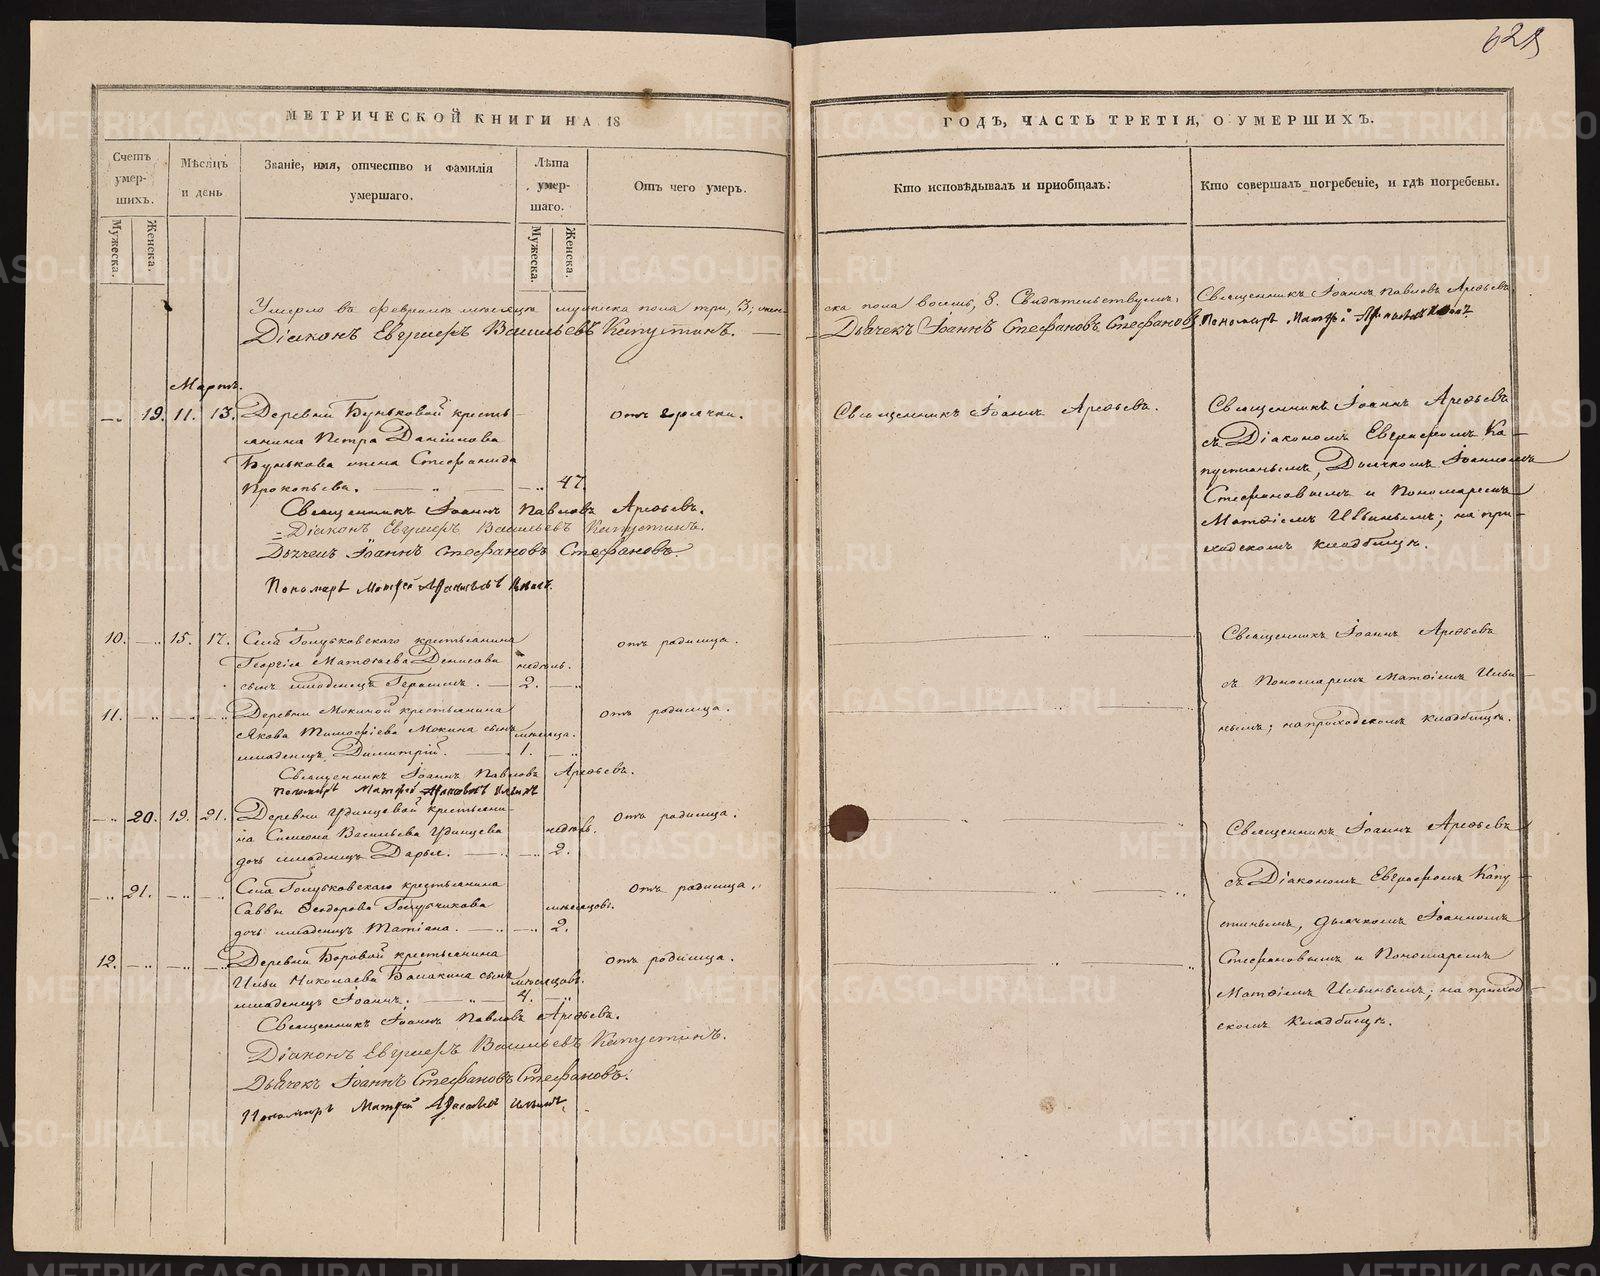 625
МЕТРИЧЕСКОЙ КНИГИ НА 18
ГОДЪ, ЧАСТЬ ТРЕТІЯ, О УМЕРШИХЪ.
Счетъ умер-
шихъ.
Мужеска.
Женска.
Мѣсяцъ
и день
Званіе, имя, отчество и фамилія
умершаго.
Лѣта
умер-
шаго.
Мужеска.
Женска.
Отъ чего умеръ.
Кто исповѣдывалъ и пріобщалъ.
Кто совершалъ погребеніе, и гдѣ погребены.
Умерло въ Февралѣ мѣсяцѣ мужеска пола три, 3; жен-
ска пола восемь, 8. Свидѣтельствуемъ:
Священникъ Іоаннъ Павловъ Арефьевъ,
Діаконъ Евгрифъ Васильевъ Капустинъ.
Дьячекъ Іоаннъ Стефановъ Стефановъ
Пономарь Матфей
Мартъ.
— 19. 11. 13. Деревни Буньковой кресть
янина Петра Даніилова
Бунькова жена Стефанида
Прокопьева. — 47.
отъ горячки.
Священникъ Іоаннъ Арефьевъ.
Священникъ Іоаннъ Арефьевъ
съ Діакономъ Евграфомъ Ка-
пустинымъ, Дьячкомъ Іоанномъ
Стефановымъ и Пономаремъ
Матөіемъ Ильинымъ; на при-
ходскомъ кладбищѣ.
Священникъ Іоаннъ Павловъ Арефьевъ.
Діаконъ Евграфъ Васильевъ Капустинъ.
Дьячекъ Іоаннъ Стефановъ Стефановъ.
Пономарь Матфей Ильинъ.
10. — 15. 17. Села Голубковскаго крестьянина
Георгія Матөѣева Денисова
сынъ младенецъ Герасимъ. —
недѣль.
2. —
отъ родимца.
Священникъ Іоаннъ Арефьевъ
съ Пономаремъ Матөіемъ Ильи-
нымъ; на приходскомъ кладбищѣ.
11. — — — Деревни Мокиной крестьянина
Якова Тимофіева Мокина сынъ
младенецъ Димитрій. —
мѣсяца.
1. —
отъ родимца.
Священникъ Іоаннъ Павловъ Арефьевъ.
Пономарь Матфей Ильинъ
— 20. 19. 21. Деревни Удинцевой крестьяни-
на Симеона Васильева Удинцева
дочь младенецъ Дарья. —
недѣль.
2.
отъ родимца.
Священникъ Іоаннъ Арефьевъ
съ Діакономъ Евграфомъ Капу-
стинымъ, дьячкомъ Іоанномъ
Стефановымъ и Пономаремъ
Матөіемъ Ильинымъ; на приход-
скомъ кладбищѣ.
— 21. — — Села Голубковскаго крестьянина
Саввы Өеодорова Голубчикова
дочь младенецъ Татіана. —
мѣсяцовъ.
2.
отъ родимца.
12. — — — Деревни Боровой крестьянина
Ильи Николаева Балакина сынъ
младенецъ Іоаннъ. —
мѣсяцовъ.
4. —
отъ родимца.
Священникъ Іоаннъ Павловъ Арефьевъ.
Діаконъ Евграфъ Васильевъ Капустинъ.
Дьячекъ Іоаннъ Стефановъ Стефановъ.
Пономарь Матфей Ильинъ
METRIKI.GASO-URAL.RU